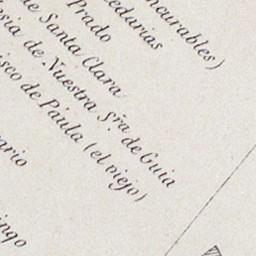 Incurables)
cedarias
Prado
de Santa Clara
sia de Nuestra Sra. de Guia
isco de Páula (el viejo)
ario
ingo